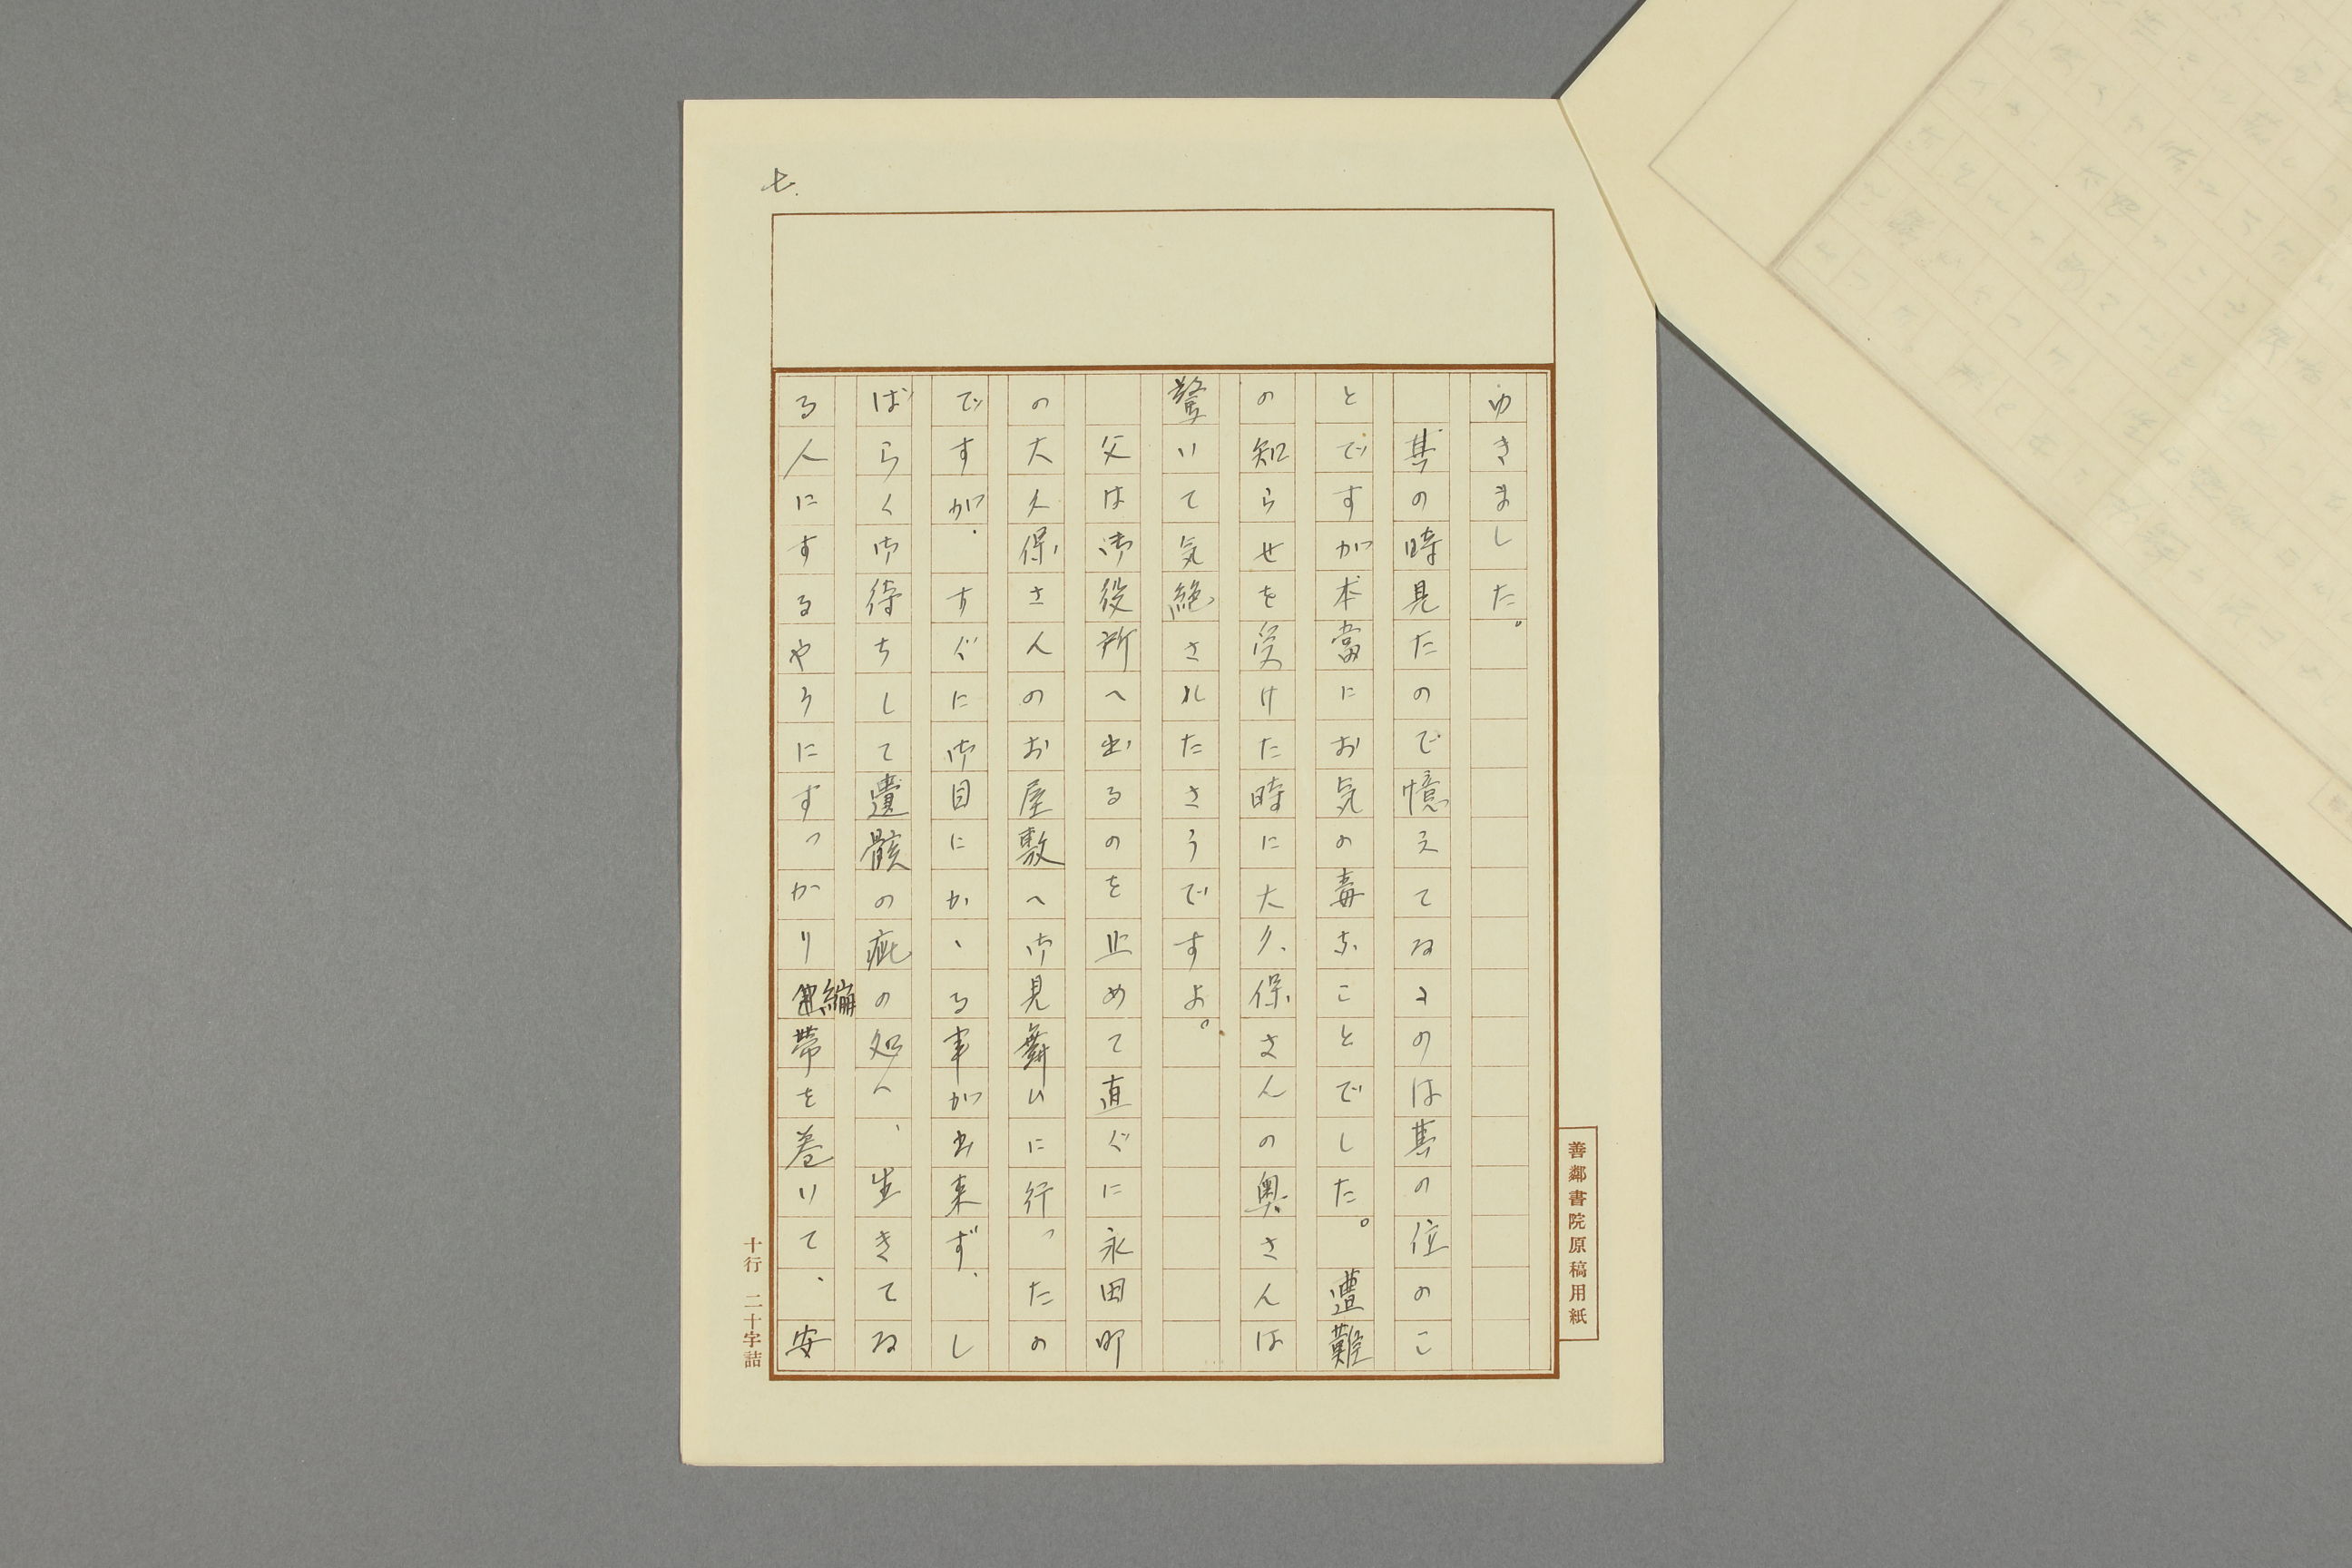 七.
ゆきました。
其の時見たので憶えてゐるのは其の位のこ
とですが本當にお気の毒なことでした。遭難
の知らせを受けた時に大久保さんの奥さんは
驚いて気絶されたさうですよ。
父は御役所へ出るのを止めて直ぐに永田町
の大久保さんのお屋敷へ御見舞ひに行ったの
ですが、すぐに御目にかゝる事が出来ず、し
ばらく御待ちして遺骸の疵の処へ、生きてゐ
る人にするやうにすっかり繃帯を巻いて、安
善鄰書院原稿用紙
十行 二十字詰